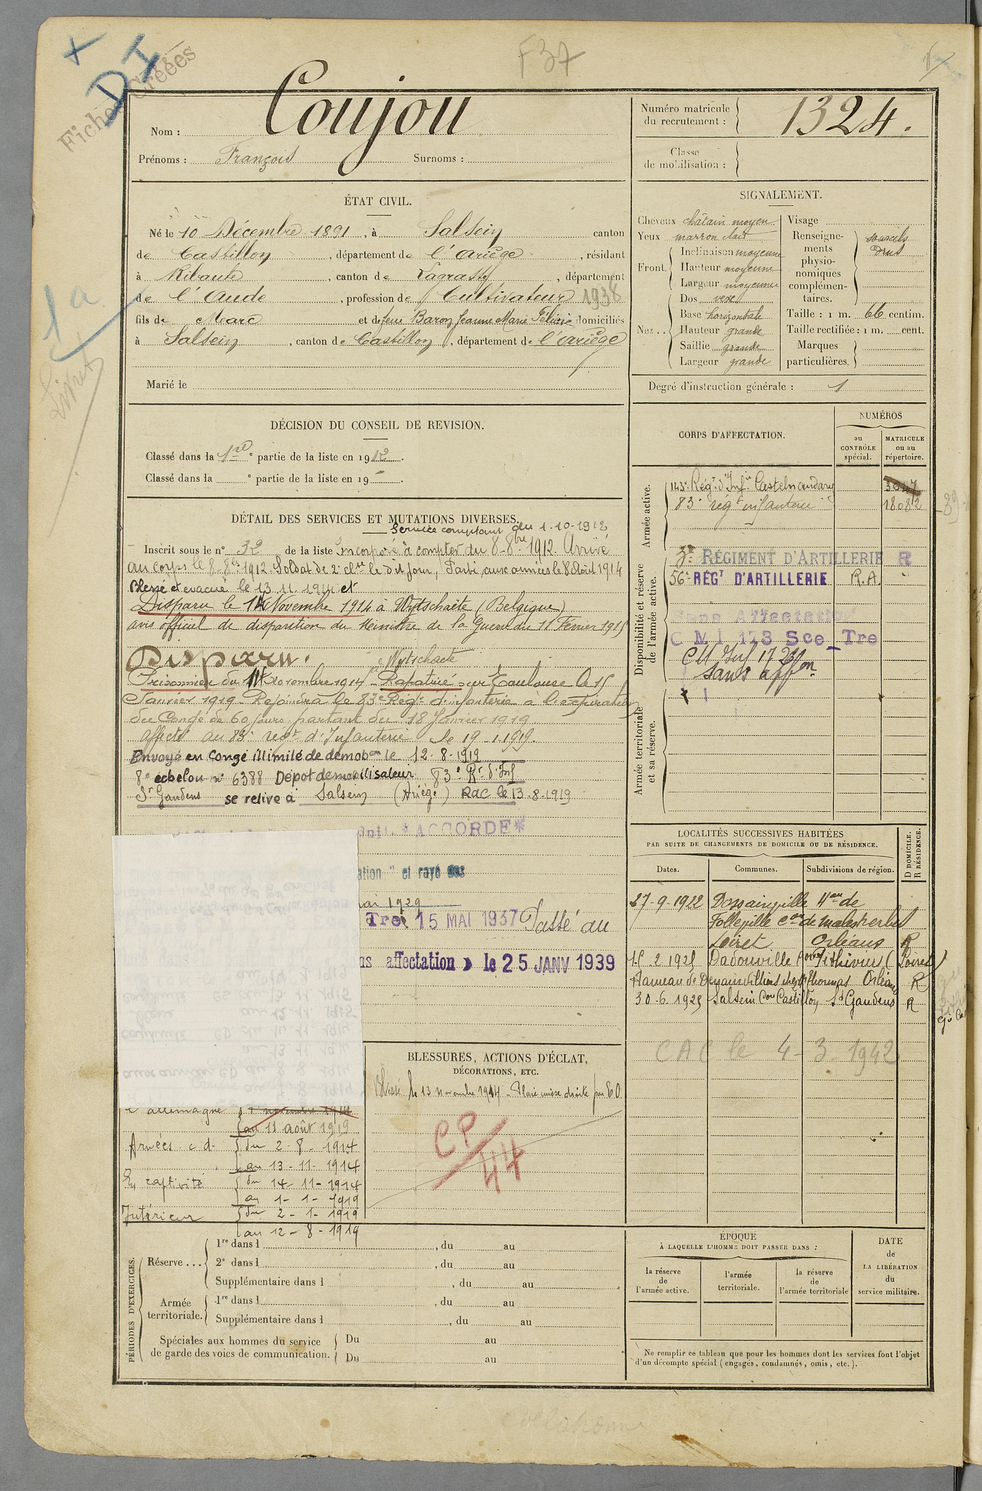 F37
DI
Fiches Créées
1a
Nom : Coujou
Prénoms : François Surnoms :
Numéro matricule
du recrutement : 1324.
Classe
de mobilisation :
ÉTAT CIVIL.
Né le 10 Décembre 1891, à Salsein canton
de Castillon, département de l'Ariège, résidant
à Ribaute, canton de Lagrasse, département
de l'Aude, profession de Cultivateur 1938
fils de Marc et de feue Baron Jeanne Marie Félicie domiciliés
à Salsein, canton de Castillon, département de l'Ariège
Marié le
SIGNALEMENT.
Cheveux châtain moyen
Yeux marron clair
Front. Inclinaison moyenne
Hauteur moyenne
Largeur moyenne
Nez. Dos vexe
Base horizontale
Hauteur grande
Saillie grande
Largeur grande
Visage
Renseigne-
ments
physio-
nomiques
complémen-
taires. sourcils
drus
Taille : 1 m. 66 centim.
Taille rectifiée : 1 m. cent.
Marques
particulières.
Degré d'instruction générale : 1
DÉCISION DU CONSEIL DE REVISION.
Classé dans la 1re partie de la liste en 1912.
Classé dans la ° partie de la liste en 19 .
CORPS D'AFFECTATION.
NUMÉROS
au
CONTRÔLE
spécial.
MATRICULE
ou au
répertoire.
Armée active.
143e Régt d'Infie Castelnaudary 3047
83e regt infanterie 18082
Disponibilité et réserve
de l'armée active.
3e RÉGIMENT D'ARTILLERIE R
56e RÉGT D'ARTILLERIE R.A
Sans Affectation
C M I 173 Sce Tre
CM Inf 17
sans affon
Armée territoriale
et sa réserve.
DÉTAIL DES SERVICES ET MUTATIONS DIVERSES.
Service comptant du 1-10-1912
Inscrit sous le n° 32 de la liste Incorporé à compter du 8 8bre 1912. Arrivé
au corps le 8 8bre 1912. Soldat de 2e clse le dit jour, Parti aux armées le 8 Août 1914
Blessé et évacué le 13.11.1914 et
Disparu le 14 Novembre 1914 à Wytschaete (Belgique)
avis officiel de disparition du Ministre de la Guerre du 11 Février 1915
Disparu. Wytschaete
Prisonnier du 14 Novembre 1914 Rapatrié sur Toulouse le 15
Janvier 1919. Rejoindra le 83e Régt d'infanterie à l'expiration
du Congé de 60 jours partant du 18 Janvier 1919
affecté au 83e regt d'Infanterie le 19-1-1919.
Envoyé en congé illimité de démobon le 12-8-1919
8e échelon n° 6388 Dépot demobilisateur 83e Rt d'Inf
St Gaudens se retire à Salsein (Ariège) RdC le 13.8.1919
*ACCORDE*
ation" et rayé des
1929
Tre 15 MAI 1937 Passé au
ns affectation » le 25 JANV 1939
LOCALITÉS SUCCESSIVES HABITÉES
PAR SUITE DE CHANGEMENTS DE DOMICILE OU DE RÉSIDENCE.
Dates. Communes. Subdivisions de région. D DOMICILE. R RÉSIDENCE.
27-9-1922 Dossainville Hau de
Folleville con de Malesherbes
Loiret Orléans R
15 2 1925 Dadonville Pithiviers (Loiret)
Hameau de Denainvilliers chez Mr Thomas Orléans R
30.6.1925 Salsein Con Castillon St Gaudens R
CAC le 4-3-1942
BLESSURES, ACTIONS D'ÉCLAT,
DÉCORATIONS, ETC.
Blessé le 13 novembre 1914 - Plaie cuisse droite par E.O.
CP
44
C. allemagne
au 11 août 1919
Armées c.d. du 2-8-1914
au 13-11-1914
En captivité du 14-11-1914
au 1-1-1919
Intérieur du 2-1-1919
au 12-8-1919
PÉRIODES D'EXERCICES.
Réserve ... 1re dans l , du au
2e dans l , du au
Supplémentaire dans l , du au
Armée
territoriale. 1re dans l , du au
Supplémentaire dans l , du au
Spéciales aux hommes du service
de garde des voies de communication. Du au
Du au
ÉPOQUE
À LAQUELLE L'HOMME DOIT PASSER DANS :
la réserve
de
l'armée active.
l'armée
territoriale.
la réserve
de
l'armée territoriale
DATE
de
LA LIBÉRATION
du
service militaire.
Ne remplir ce tableau que pour les hommes dont les services font l'objet
d'un décompte spécial (engagés, condamnés, omis, etc.).